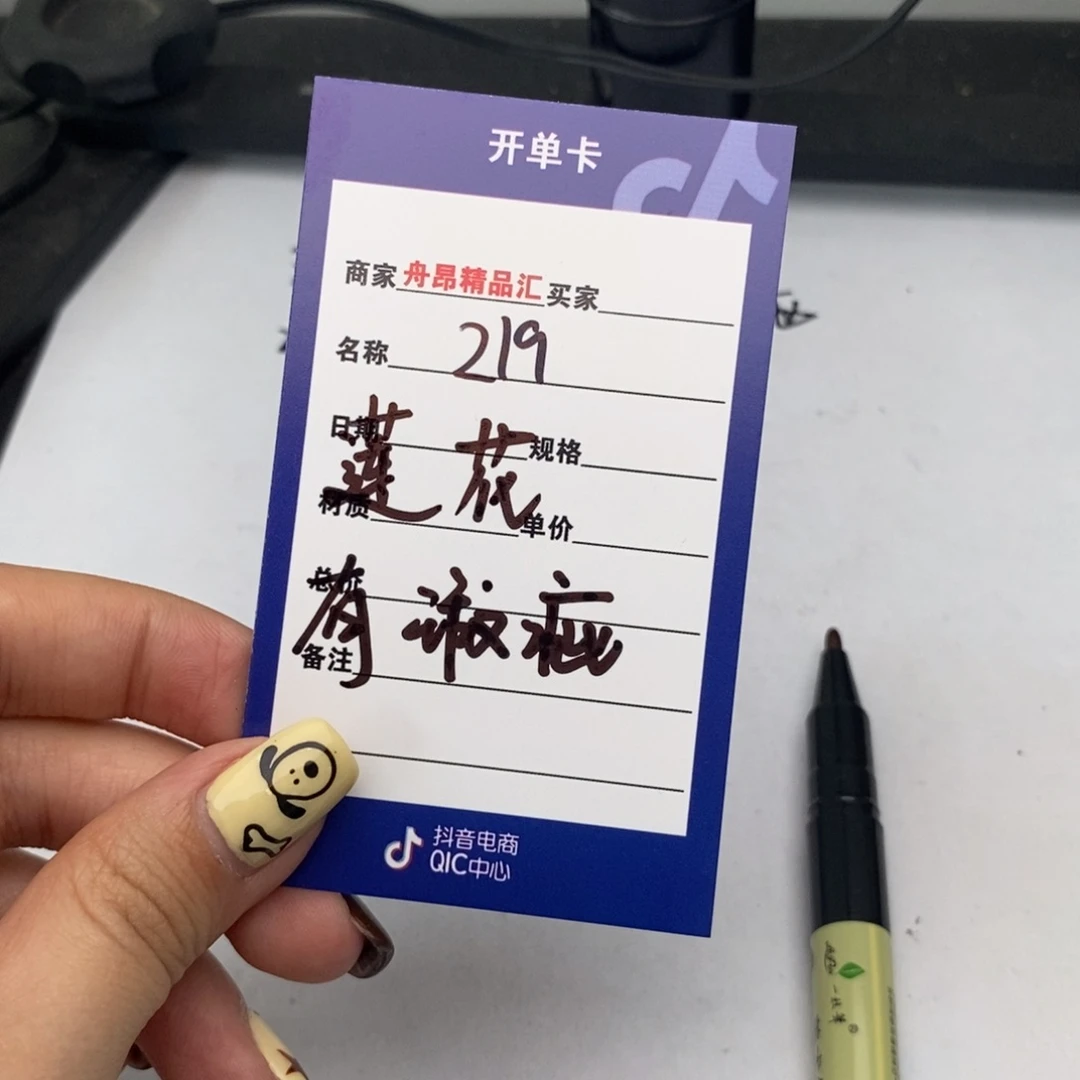 开单卡
商家舟昂精品汇买家
名称 219
日期 规格
莲花
材质 单价
总价
有微疵
备注
抖音电商
QIC中心